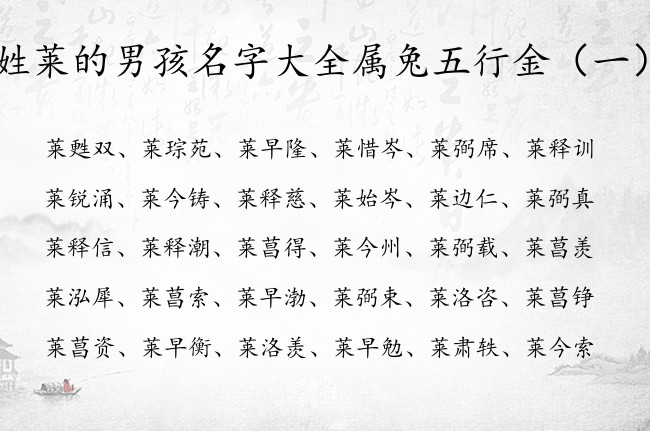 姓莱的男孩名字大全属兔五行金（一）
莱甦双、莱琮苑、莱早隆、莱惜岑、莱弼席、莱释训
莱锐涌、莱今铸、莱释慈、莱始岑、莱边仁、莱弼真
莱释信、莱释潮、莱菖得、莱今州、莱弼载、莱菖羡
莱泓犀、莱菖索、莱早渤、莱弼束、莱洛咨、莱菖铮
莱菖资、莱早衡、莱洛羡、莱早勉、莱肃轶、莱今索